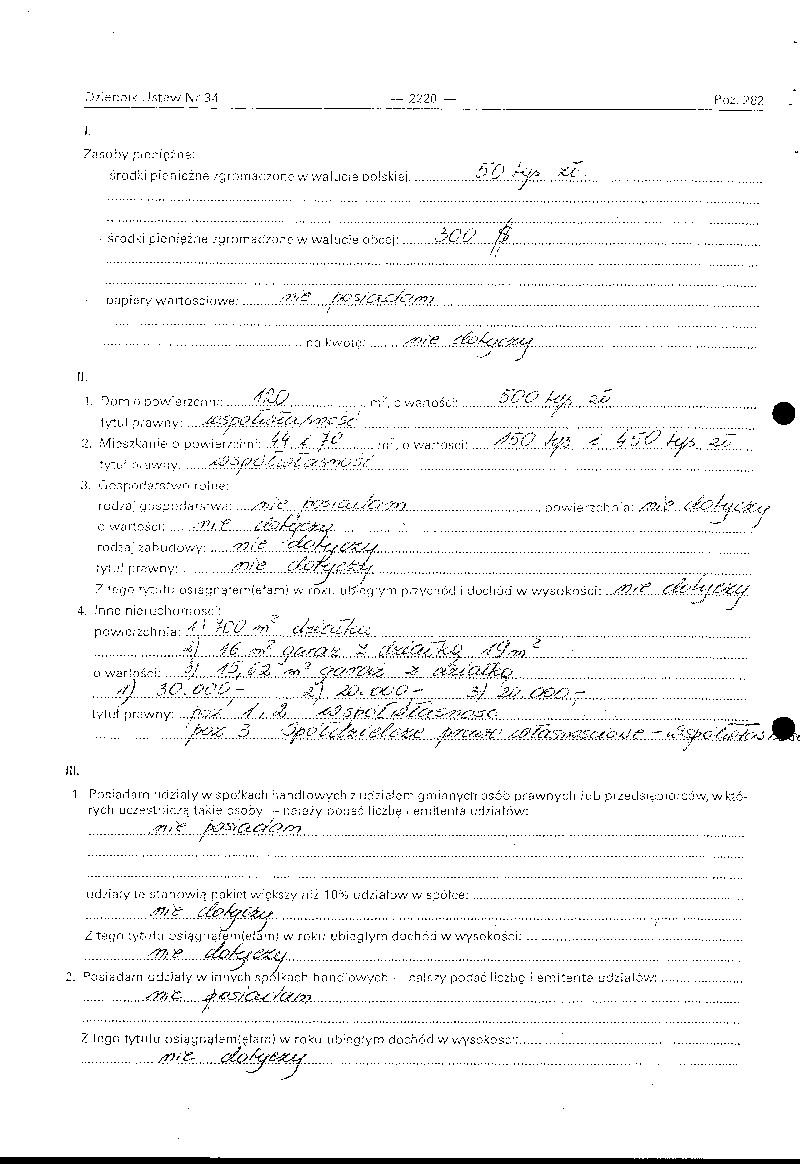 Dziennik Ustaw Nr 34 — 2220 — Poz. 282
I.
Zasoby pieniężne:
- środki pieniężne zgromadzone w walucie polskiej: 50 tys zł
- środki pieniężne zgromadzone w walucie obcej: 300 $
- papiery wartościowe: nie posiadam
na kwotę: nie dotyczy
II.
1. Dom o powierzchni: 120 m², o wartości: 500 tys zł
tytuł prawny: współwłasność
2. Mieszkanie o powierzchni: 44 i 70 m², o wartości: 150 tys i 450 tys zł
tytuł prawny: współwłasność
3. Gospodarstwo rolne:
rodzaj gospodarstwa: nie posiadam powierzchnia: nie dotyczy
o wartości: nie dotyczy
rodzaj zabudowy: nie dotyczy
tytuł prawny: nie dotyczy
Z tego tytułu osiągnąłem(ęłam) w roku ubiegłym przychód i dochód w wysokości: nie dotyczy
4. Inne nieruchomości:
powierzchnia: 1) 700 m² działka
2) 16 m² garaż z działką 19 m²
o wartości: 3) 15,62 m² garaż z działką
1) 30.000,- 2) 20.000,- 3) 20.000,-
tytuł prawny: poz 1, 2 współwłasność
poz 3 Spółdzielcze prawo własnościowe -
III.
1. Posiadam udziały w spółkach handlowych z udziałem gminnych osób prawnych lub przedsiębiorców, w któ-
rych uczestniczą takie osoby – należy podać liczbę i emitenta udziałów:
nie posiadam
udziały te stanowią pakiet większy niż 10% udziałów w spółce:
nie dotyczy
Z tego tytułu osiągnąłem(ęłam) w roku ubiegłym dochód w wysokości:
nie dotyczy
2. Posiadam udziały w innych spółkach handlowych – należy podać liczbę i emitenta udziałów:
nie posiadam
Z tego tytułu osiągnąłem(ęłam) w roku ubiegłym dochód w wysokości:
nie dotyczy